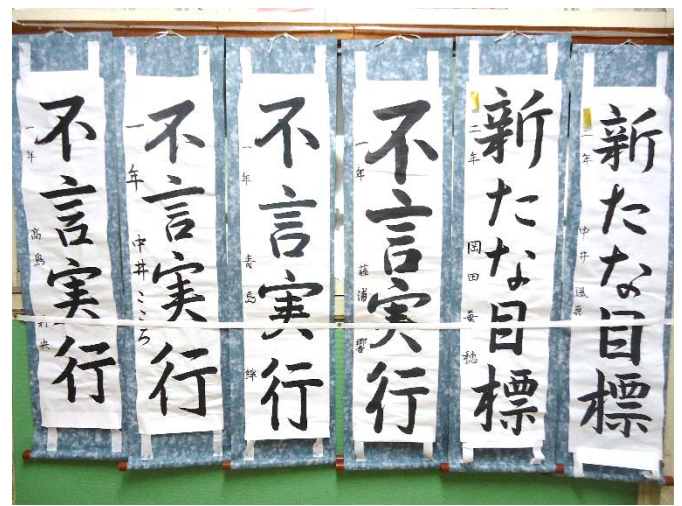 新たな目標
二年 中井
新たな目標
二年 岡田
不言実行
一年 藤浦 響
不言実行
一年 青島
不言実行
一年 中井こころ
不言実行
一年 高島